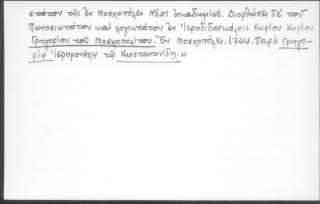 στάτου τῆς ἐν Μοσχοπόλει Νέας Ἀκαδημίας. Διορθώσει δὲ τοῦ
Πανοσιωτάτου καὶ λογιωτάτου ἐν Ἱεροδιδασκάλοις Κυρίου Κυρίου
Γρηγορίου τοῦ Μοσχοπολίτου. Ἐν Μοσχοπόλει. 1744. Παρὰ Γρηγο-
ρίῳ Ἱερομονάχῳ τῷ Κωνσταντινίδῃ.»